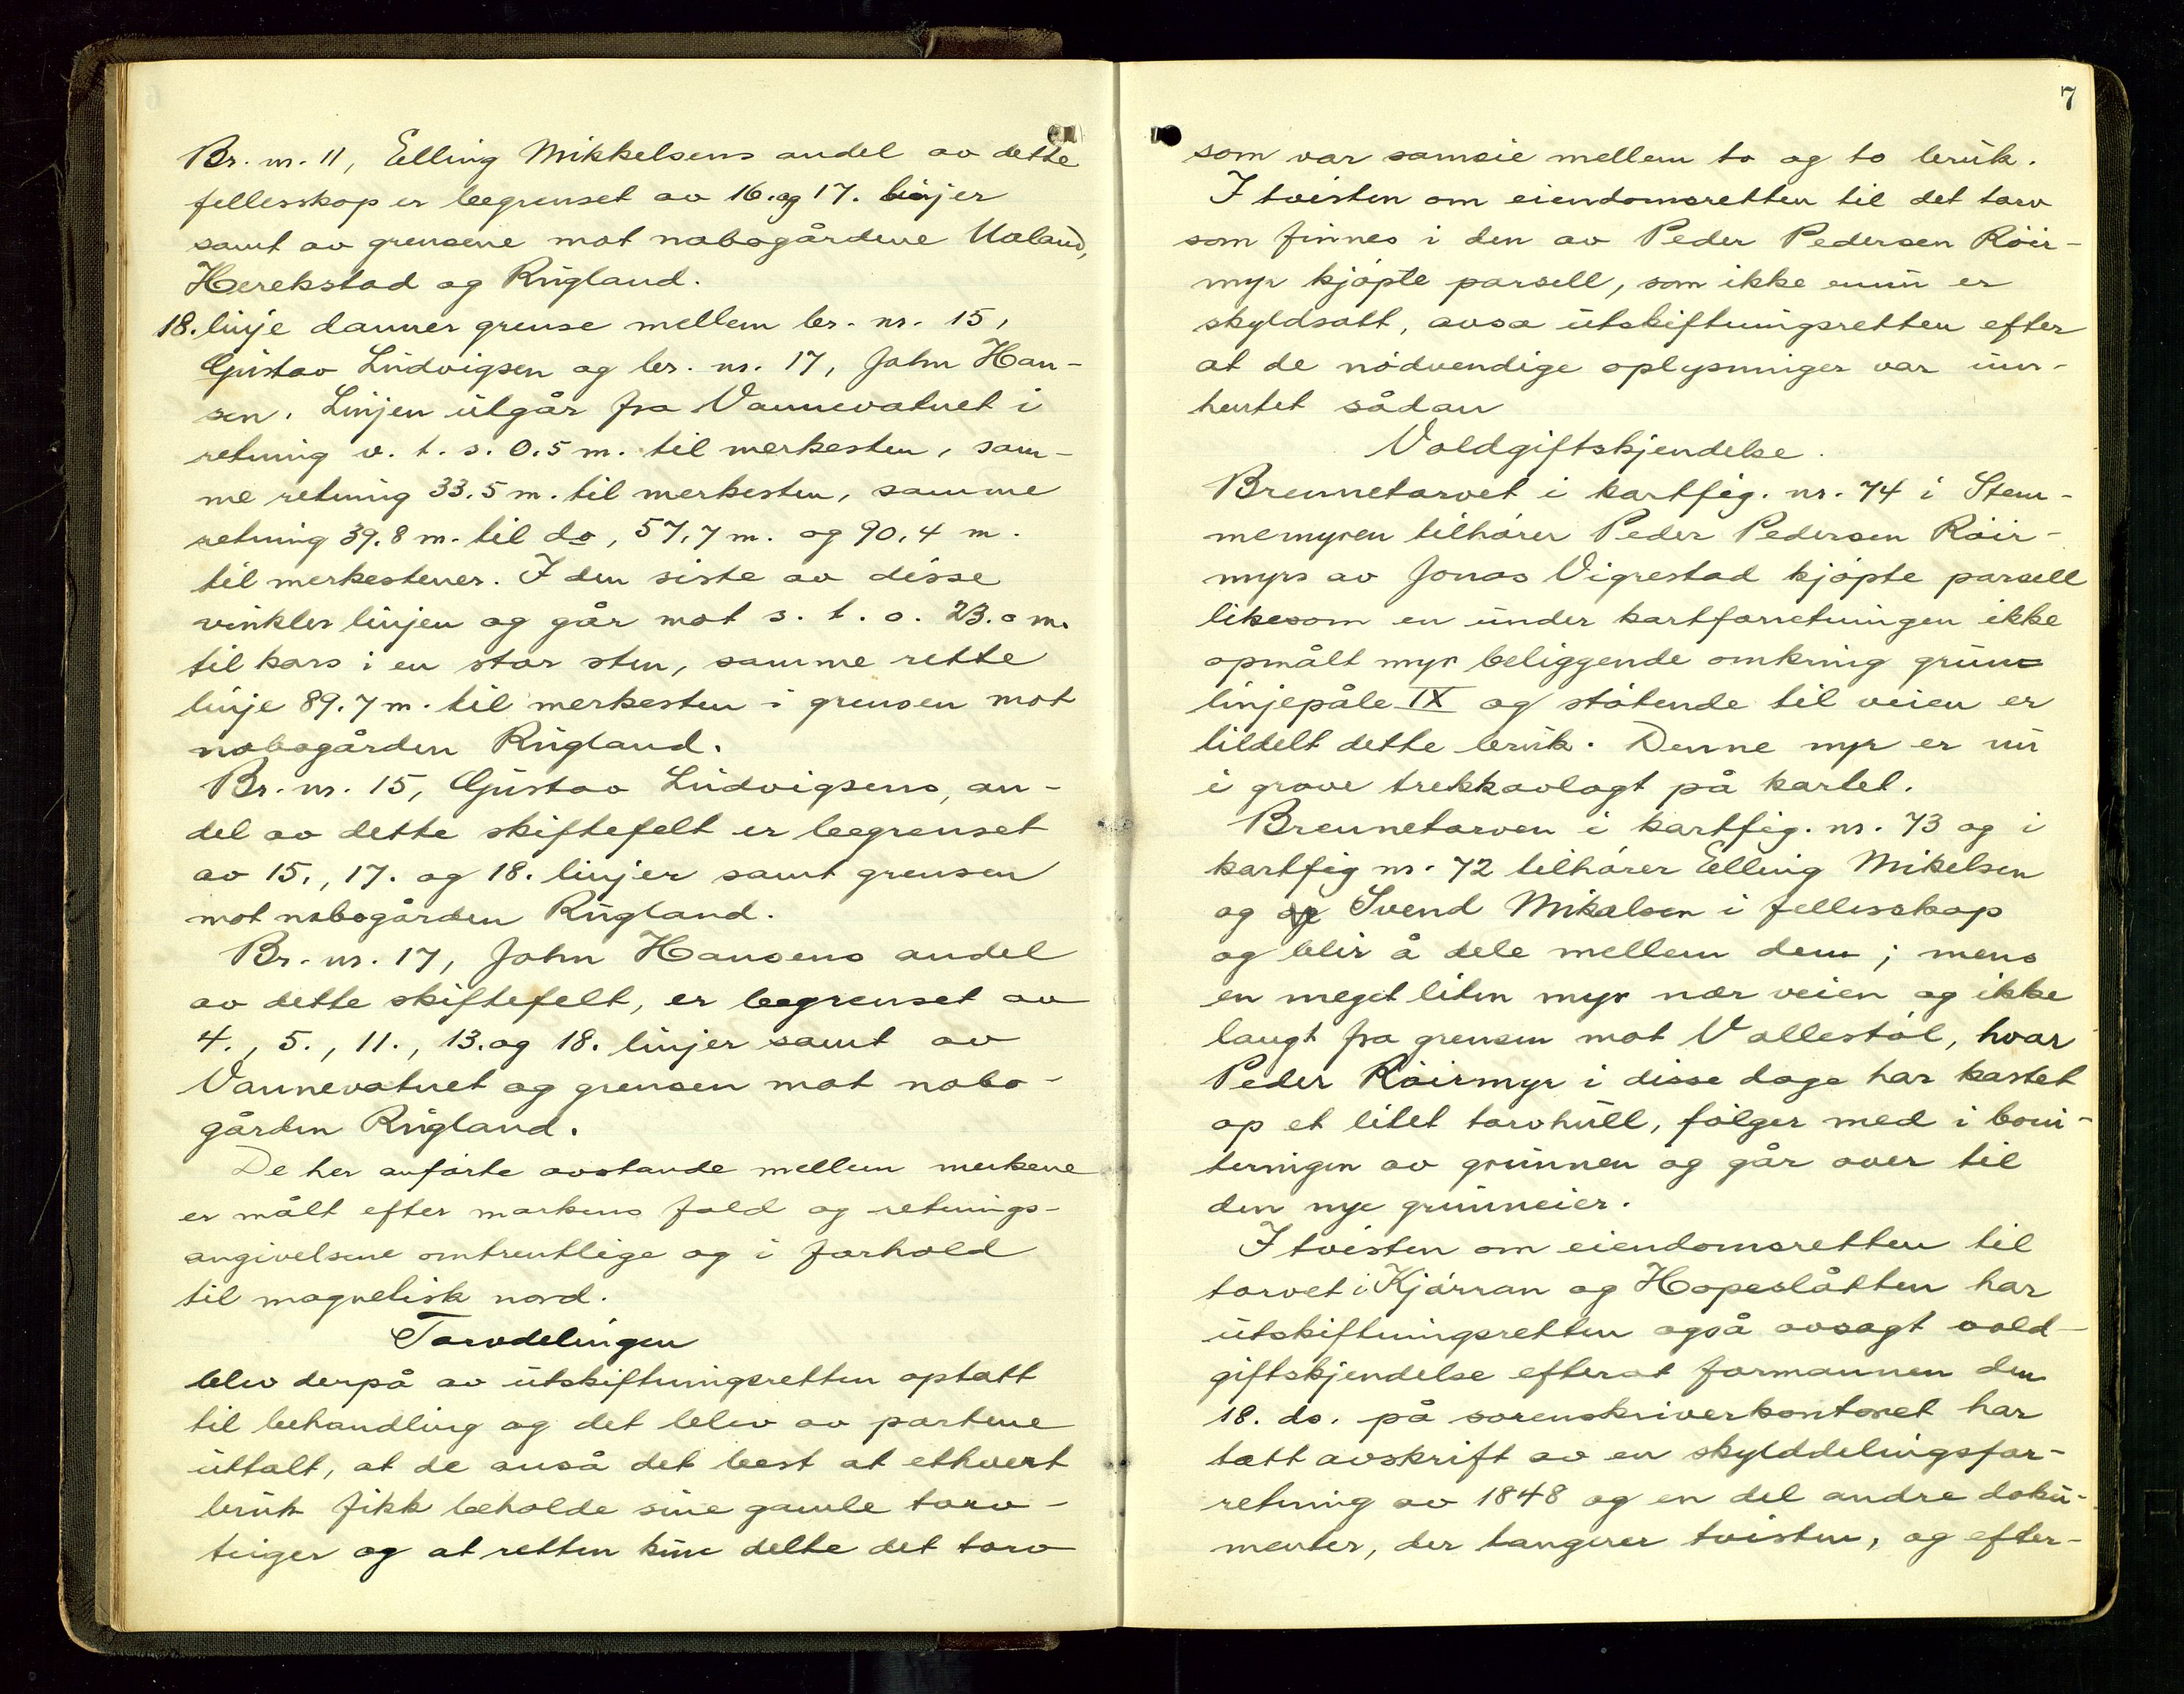 Br. nr. 11, Elling Mikkelsens andel av dette
fellesskap er begrenset av 16. og 17. linjer
samt av grensene mot nabogårdene Ualand,
Herekstad og Rugland.
18. linje danner grense mellem br. nr. 15,
Gustav Ludvigsen og br. nr. 17, John Han-
sen. Linjen utgår fra Vannevatnet i
retning v. t. s. 0.5 m. til merkesten, sam-
me retning 33.5 m. til merkesten, samme
retning 39.8 m. til do, 57,7 m. og 90,4 m.
til merkestener. I den siste av disse
vinkler linjen og går mot s. t. o. 23.0 m.
til kors i en stor sten, samme rette
linje 89.7 m. til merkesten i grensen mot
nabogården Rugland.
Br. nr. 15, Gustav Ludvigsens, an-
del av dette skiftefelt er begrenset
av 15., 17. og 18. linjer samt grensen
mot nabogården Rugland.
Br. nr. 17, John Hansens andel
av dette skiftefelt, er begrenset av
4., 5., 11., 13. og 18. linjer samt av
Vannevatnet og grensen mot nabo-
gården Rugland.
De her anførte avstande mellem merkene
er målt efter markens fald og retnings-
angivelsene omtrentlige og i forhold
til magnetisk nord.
Torvdelingen
blev derpå av utskiftningsretten optatt
til behandling og det blev av partene
uttalt, at de anså det best at ethvert
bruk fikk beholde sine gamle torv-
teiger og at retten kun delte det torv
7
som var sameie mellem to og to bruk.
I tvisten om eiendomsretten til det torv
som finnes i den av Peder Pedersen Röir-
myr kjøpte parsell, som ikke ennu er
skyldsatt, avsa utskiftningsretten efter
at de nødvendige oplysninger var inn-
hentet sådan
Voldgiftskjendelse.
Brennetorvet i kartfig. nr. 74 i Stem-
memyren tilhører Peder Pedersen Röir-
myrs av Jonas Vigrestad kjøpte parsell
likesom en under kartforretningen ikke
opmålt myr beliggende omkring grunn-
linjepåle IX og støtende til veien er
tildelt dette bruk. Denne myr er nu
i grove trekk avlagt på kartet.
Brennetorven i kartfig. nr. 73 og i
kartfig nr. 72 tilhører Elling Mikelsen
og og Svend Mikalsen i fellesskap
og blir å dele mellem dem; mens
en meget liten myr nær veien og ikke
langt fra grensen mot Vallestöl, hvor
Peder Röirmyr i disse dage har kastet
op et litet torvhull, følger med i boni-
teringen av grunnen og går over til
den nye grunneier.
I tvisten om eiendomsretten til
torvet i Kjörran og Hopeslåtten har
utskiftningsretten også avsagt vold-
giftskjendelse efterat formannen den
18. ds. på sorenskriverkontoret har
tatt avskrift av en skylddelingsfor-
retning av 1848 og en del andre doku-
menter, der tangerer tvisten, og efter-